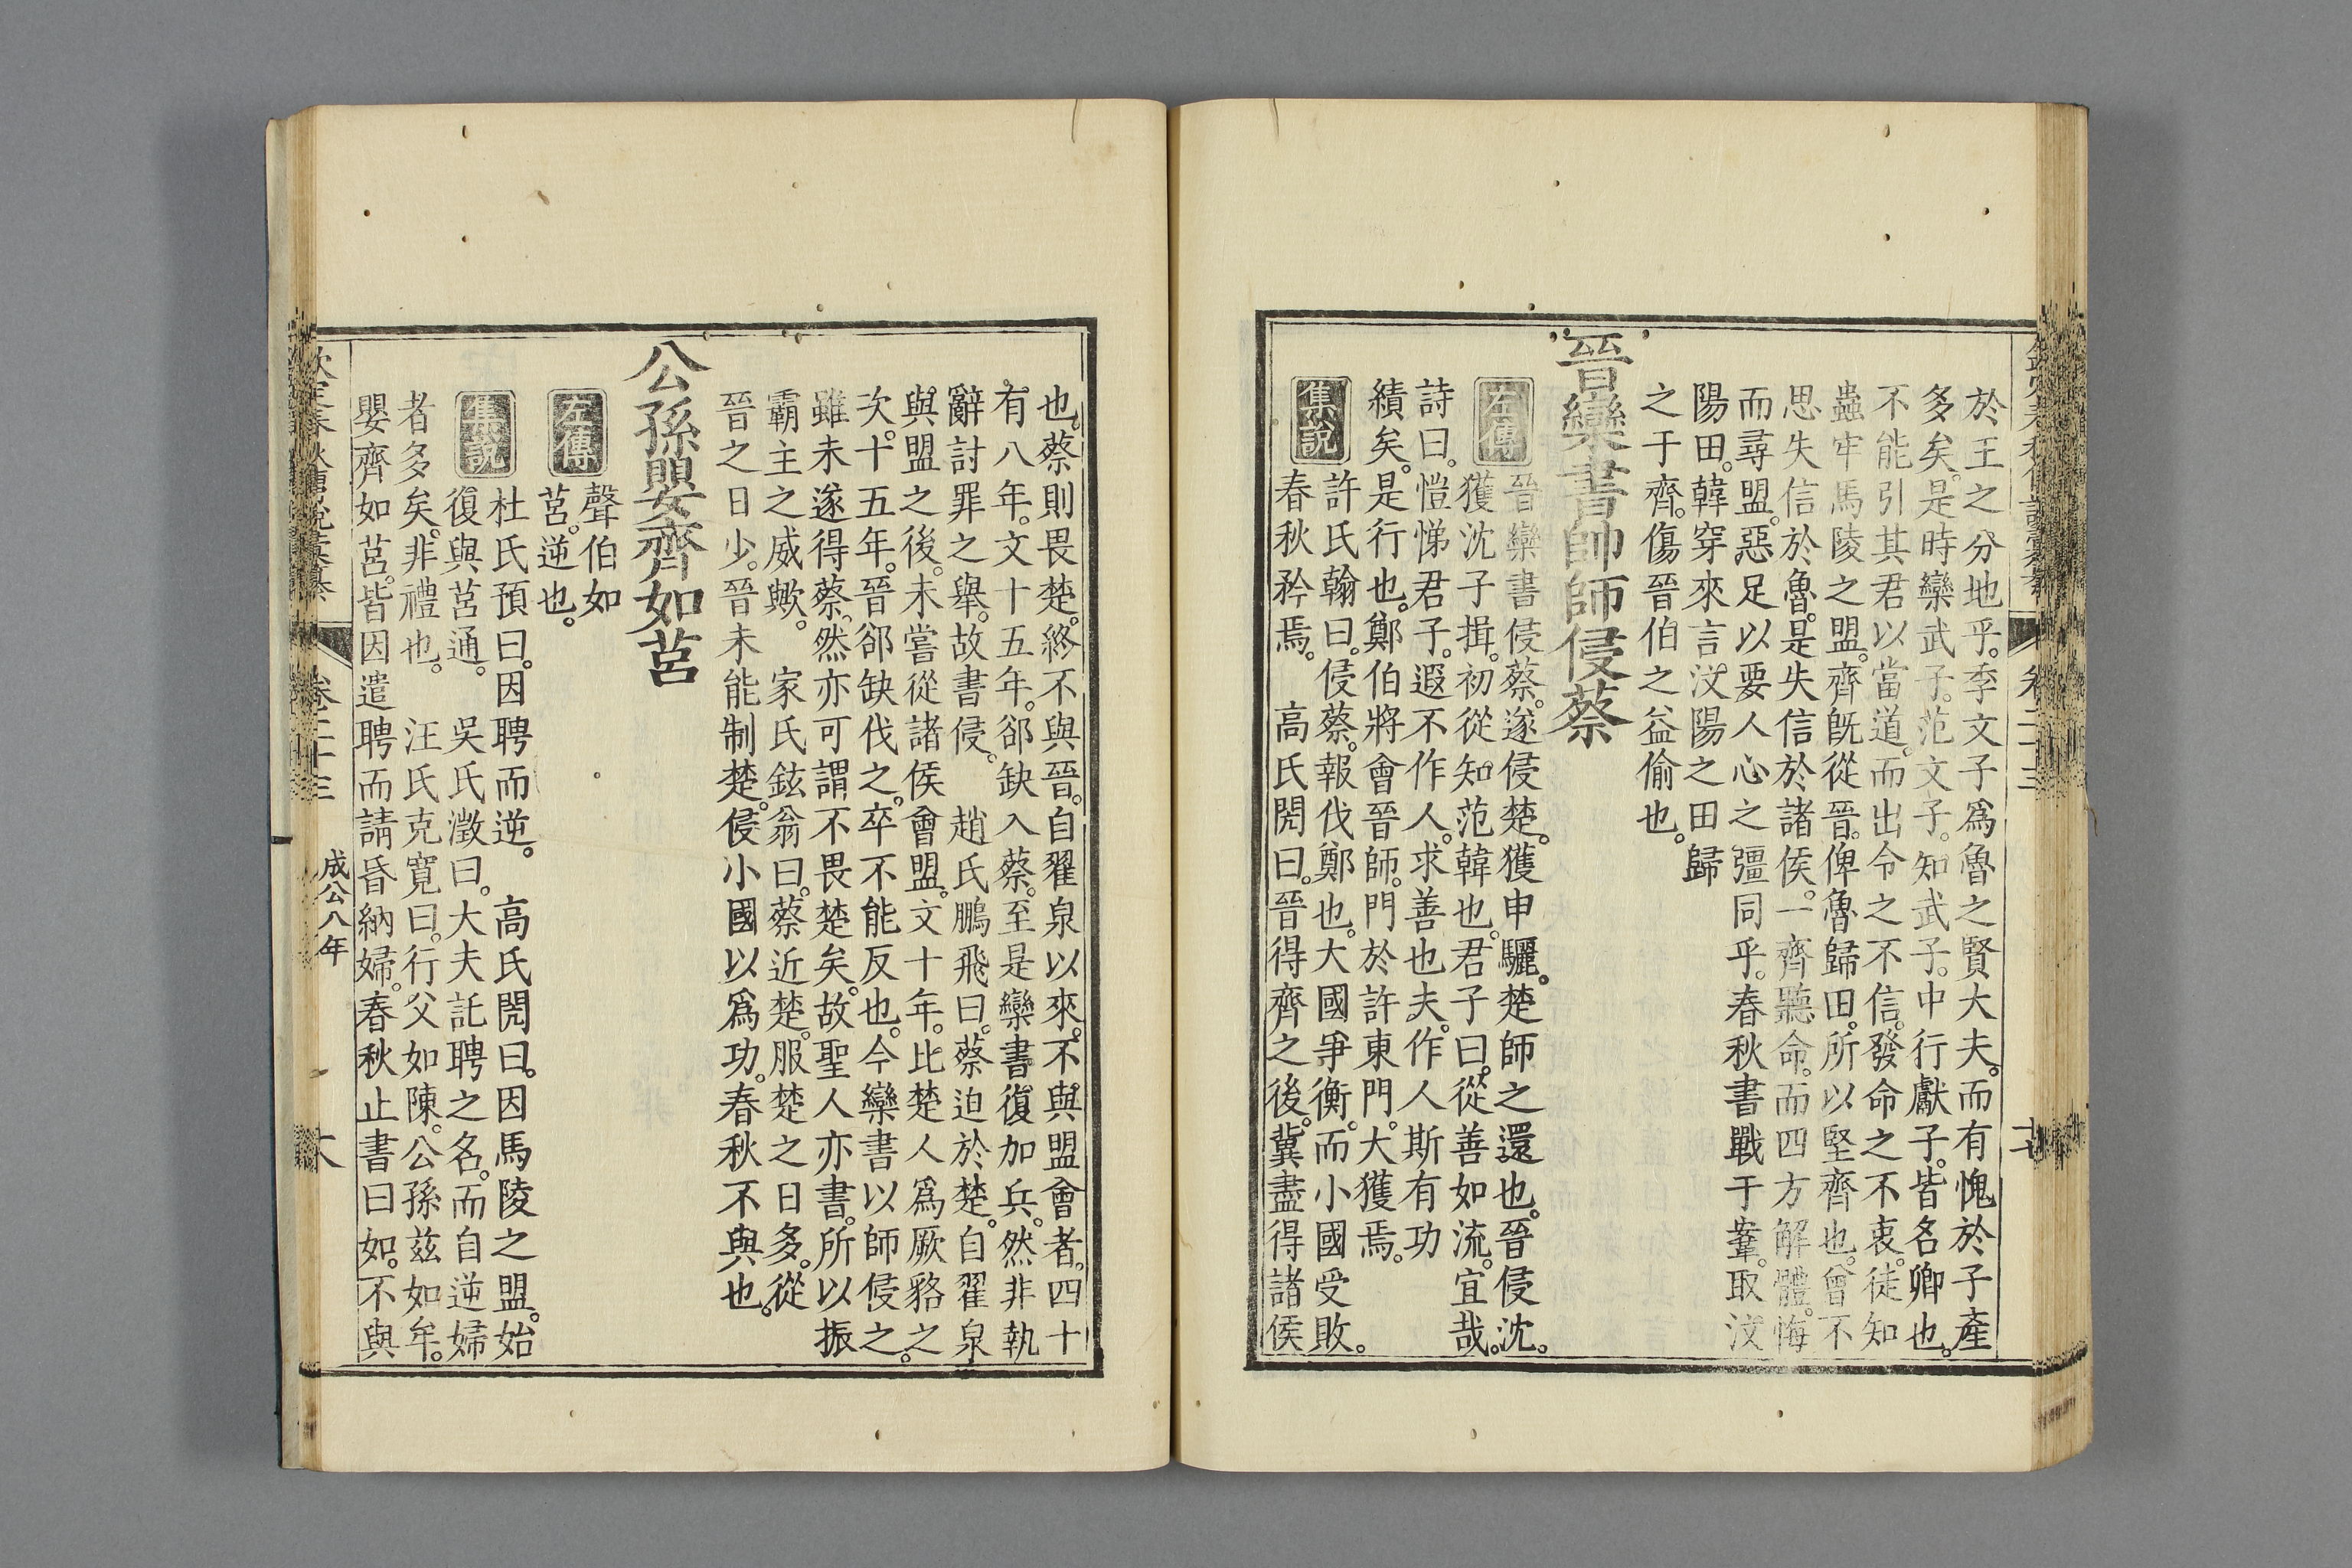 於王之分地乎。季文子爲魯之賢大夫。而有愧於子產
多矣。是時欒武子。范文子。知武子。中行獻子。皆名卿也。
不能引其君以當道。而出令之不信。發命之不衷。徒知
蟲牢馬陵之盟。齊旣從晉。俾魯歸田。所以堅齊也。曾不
思失信於魯。是失信於諸侯。一齊聽命。而四方解體。悔
而尋盟。惡足以要人心之彊同乎。春秋書戰于鞌。取汶
陽田。韓穿來言汶陽之田歸
之于齊。傷晉伯之益偷也。
晉欒書帥師侵蔡
左傳
晉欒書侵蔡。遂侵楚。獲申驪。楚師之還也。晉侵沈。
獲沈子揖。初從知范韓也。君子曰。從善如流。宜哉。
詩曰。愷悌君子。遐不作人。求善也夫。作人斯有功
績矣。是行也。鄭伯將會晉師。門於許東門。大獲焉。
集說
許氏翰曰。侵蔡。報伐鄭也。大國爭衡。而小國受敗。
春秋矜焉。 高氏閌曰。晉得齊之後。冀盡得諸侯
卷二十三
十七
也。蔡則畏楚。終不與晉。自翟泉以來。不與盟會者。四十
有八年。文十五年。郤缺入蔡。至是欒書復加兵。然非執
辭討罪之舉。故書侵。 趙氏鵬飛曰。蔡迫於楚。自翟泉
與盟之後。未嘗從諸侯會盟。文十年。比楚人爲厥貉之
次。十五年。晉郤缺伐之。卒不能反也。今欒書以師侵之。
雖未遂得蔡。然亦可謂不畏楚矣。故聖人亦書。所以振
霸主之威歟。 家氏鉉翁曰。蔡近楚。服楚之日多。從
晉之日少。晉未能制楚。侵小國以爲功。春秋不與也。
公孫嬰齊如莒
左傳
聲伯如
莒。逆也。
集說
杜氏預曰。因聘而逆。 高氏閌曰。因馬陵之盟。始
復與莒通。 吳氏澂曰。大夫託聘之名。而自逆婦
者多矣。非禮也。 汪氏克寬曰。行父如陳。公孫茲如牟。
嬰齊如莒。皆因遣聘而請昏納婦。春秋止書曰如。不與
卷二十三
成公八年